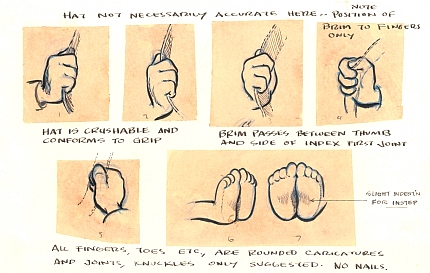 HAT NOT NECESSARILY ACCURATE HERE -- NOTE POSITION OF
BRIM TO FINGERS
ONLY
1
2
3
4
HAT IS CRUSHABLE AND
CONFORMS TO GRIP
BRIM PASSES BETWEEN THUMB
AND SIDE OF INDEX FIRST JOINT
5
6
7
SLIGHT INDENT'N
FOR INSTEP
ALL FINGERS, TOES ETC, ARE ROUNDED CARICATURES
AND JOINTS, KNUCKLES ONLY SUGGESTED. NO NAILS.